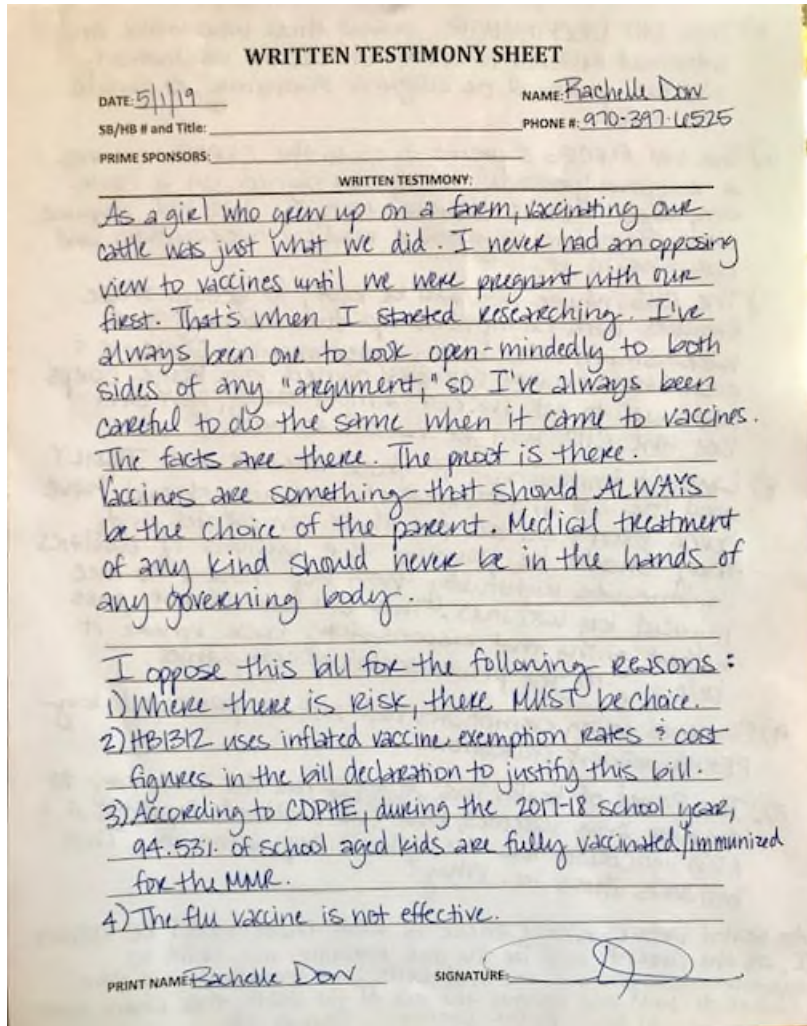 WRITTEN TESTIMONY SHEET
DATE: 5/1/19 NAME: Rachelle Dow
SB/HB # and Title: PHONE #: 970-397-6525
PRIME SPONSORS:
WRITTEN TESTIMONY:
As a girl who grew up on a farm, vaccinating our
cattle was just what we did. I never had an opposing
view to vaccines until we were pregnant with our
first. That's when I started researching. I've
always been one to look open-mindedly to both
sides of any "argument," so I've always been
careful to do the same when it came to vaccines.
The facts are there. The proof is there.
Vaccines are something that should ALWAYS
be the choice of the parent. Medical treatment
of any kind should never be in the hands of
any governing body.
I oppose this bill for the following reasons:
1) Where there is risk, there MUST be choice.
2) HB1312 uses inflated vaccine exemption rates & cost
figures in the bill declaration to justify this bill.
3) According to CDPHE, during the 2017-18 school year,
94.53% of school aged kids are fully vaccinated/immunized
for the MMR.
4) The flu vaccine is not effective.
PRINT NAME: Rachelle Dow SIGNATURE: